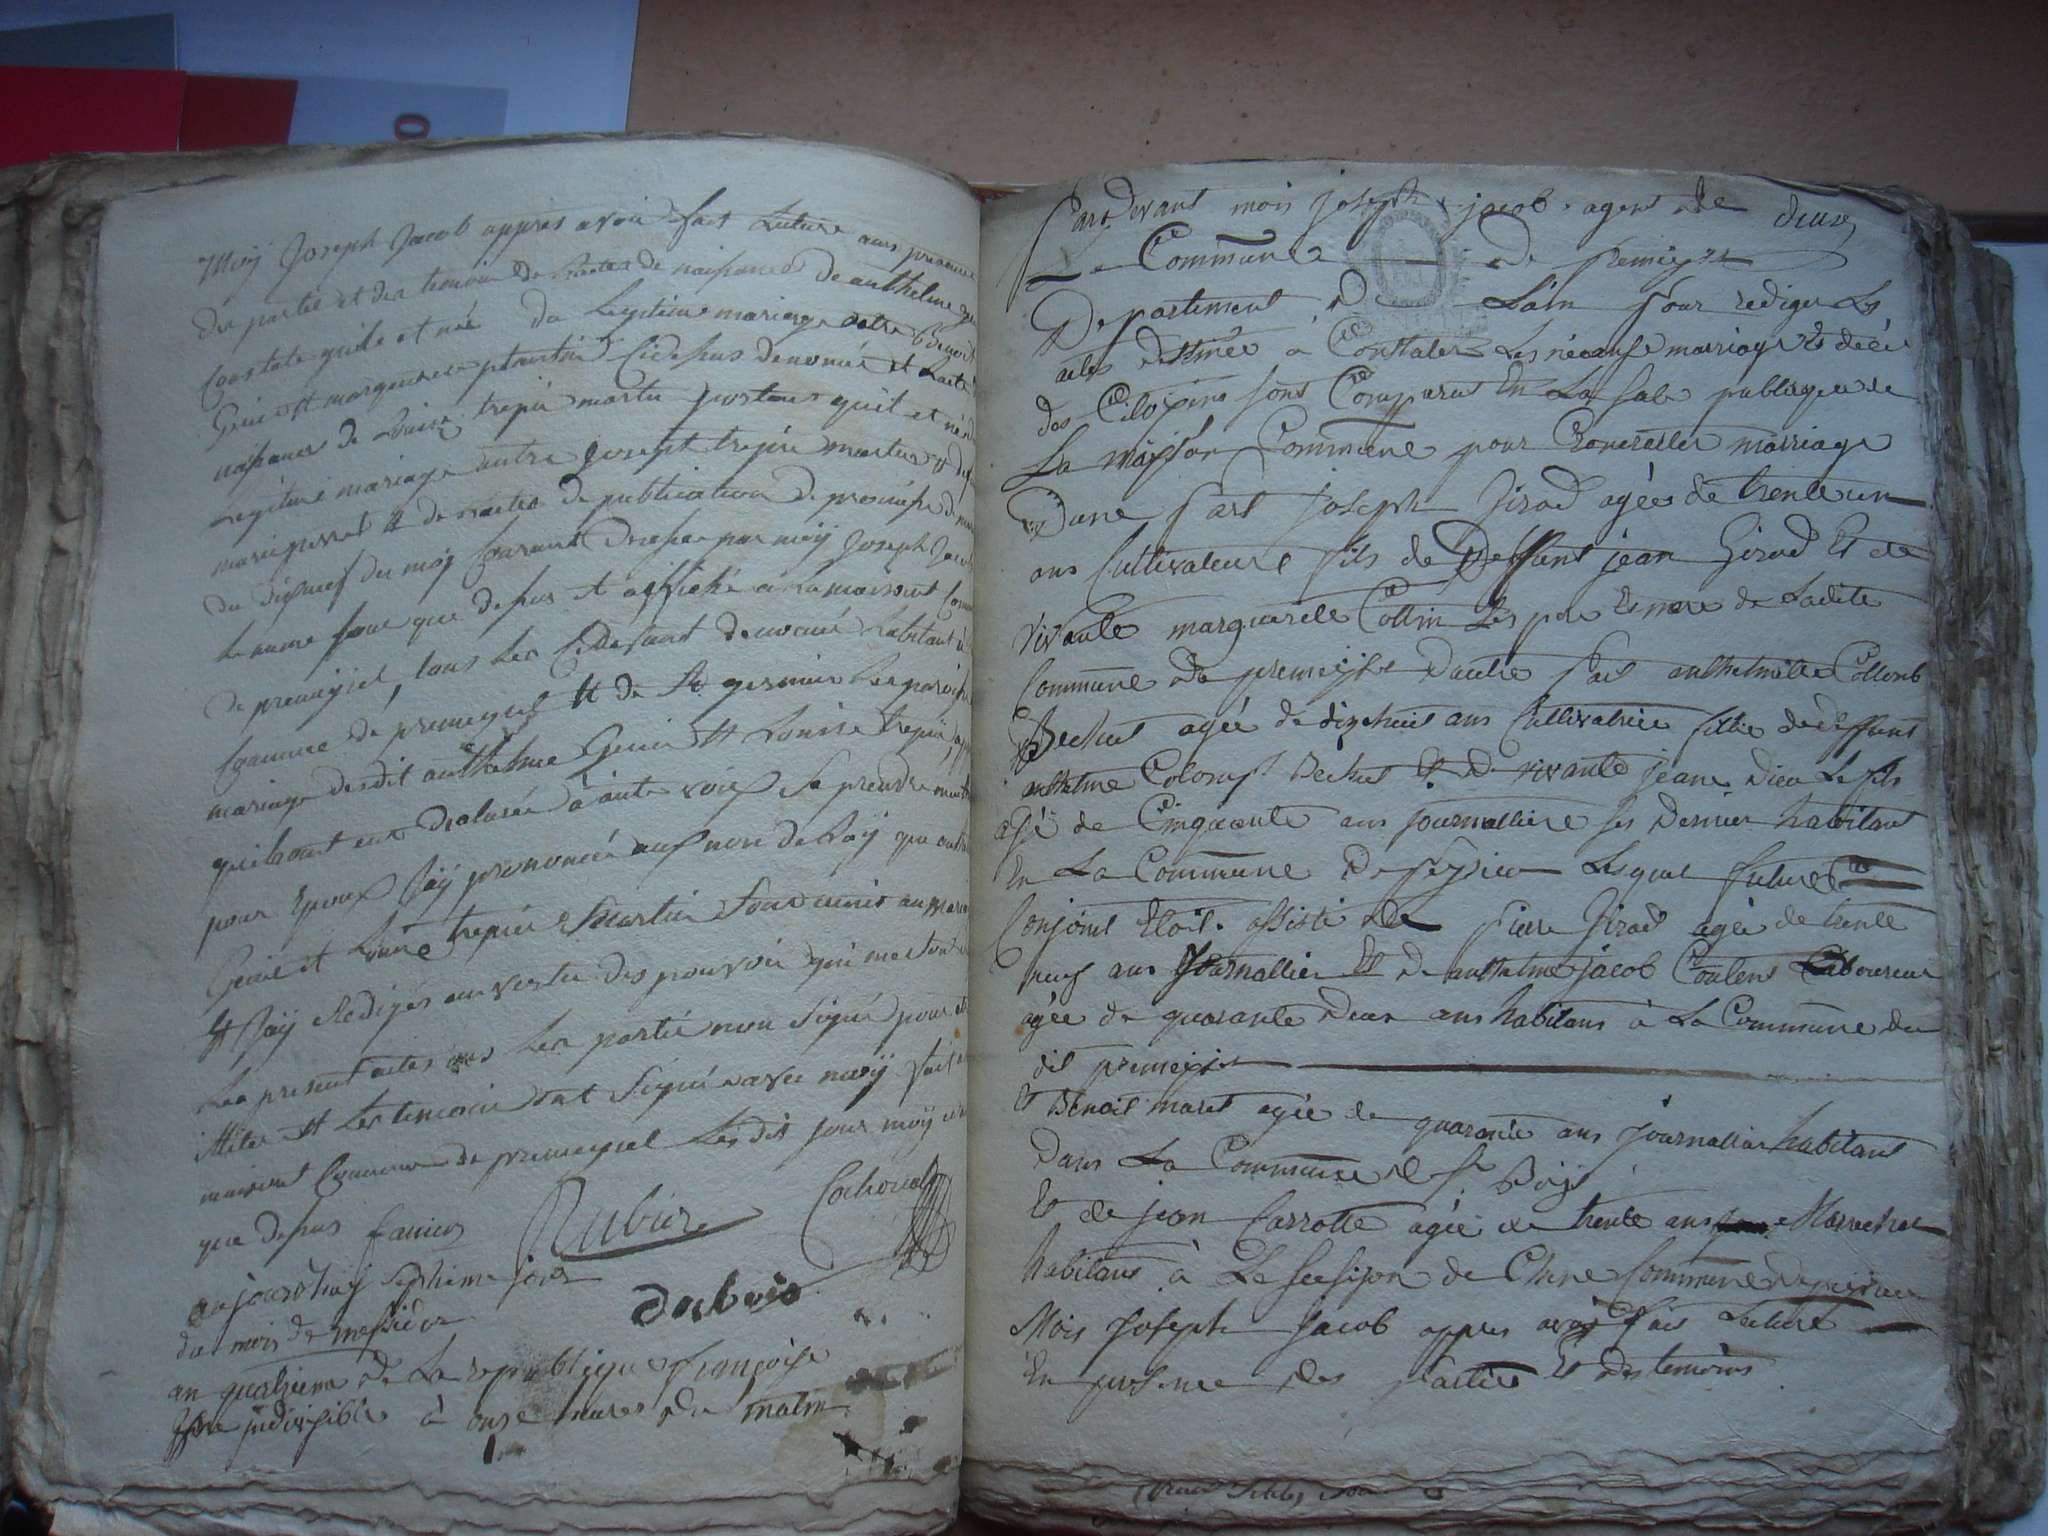 Moy Joseph Jacob appres avoir fait Luture aux presance
des partie et des temoin de Lactes de naissance de anthelme
Constate quile et née du Legitime mariage entre benoit
Genie et marguerite Cidesus denomée et Lacte
naissance de Louise trepié martin quil et née
Legitime mariage entre joseph trepié martin et
et de Lactes de publication de promesse de
du disneuf du moy Courant Dressee par moy Joseph Jacob
Le meme jour que desus et affiché a La maison Com
de premeysel, tous Les Cidesant denomé habitant
Comune de premeysel et de St germain Les paroisse
mariage desdit anthelme Genie et Louise trepié
quil ont eux declarée à aute voix se prendre
pour Epoux jay prononcée aux nom de Loÿ que
Genie et Louise trepié Martin sont unis au
et jay Redigés en vertu des pouvoir qui me sont
Les present actes Les partie non Signé pour
et Les temoin ont Signé avec moÿ fait
maison Commune de premeysel Lesdit jour moy
que desus
Rubier Cochonat
Dubois
aujourdhuy septieme jour
du mois de messidor
an quatrieme de La republique françoise
une jndivisible à onze heures du matin
Pardevant mois joseph jacob agent de deux
La Commune de premeyzel
Departement de Lain pour rediger Les
actes destinée à Constater Les néccense marriage Et décé
des Citoyens sont Comparus En La sale publique de
La maison Commune pour Contracter marriage
Dune part joseph Jirod agée de trente un
ans Cultivateure fils de Deffunt jean Girod Et de
vivante marguerite Collin Les pere Et mere de Ladite
Commune de premeyzel Dautre part anthelmette Collomb
Bechet agée de dizehuit ans Cultivatrice fillie de deffunt
anthelme Colomb Bechet Et de vivante jeane Dieu Le fils
agé de Cinquante ans journalliere ses Dernier habitant
En La Commune de peyzieu Lesquel futures
Conjoint Etoit assisté de Pierre Jirod agée de trente
neuf ans journallier Et de anthelme jacob Coulent Laboureur
agée de quarante deux ans habitans à La Commune du
dit premeyzel
Et Benoit maret agée de quarante ans journallier habitant
dans La Commune de St Bois
Et de jean Carrotte agée de trente ans Marrechal
habitans à La section de Chene Commune de peyzieu
Mois Joseph Jacob appres avoir fait Lecture
En presence des Partie Et des temoins